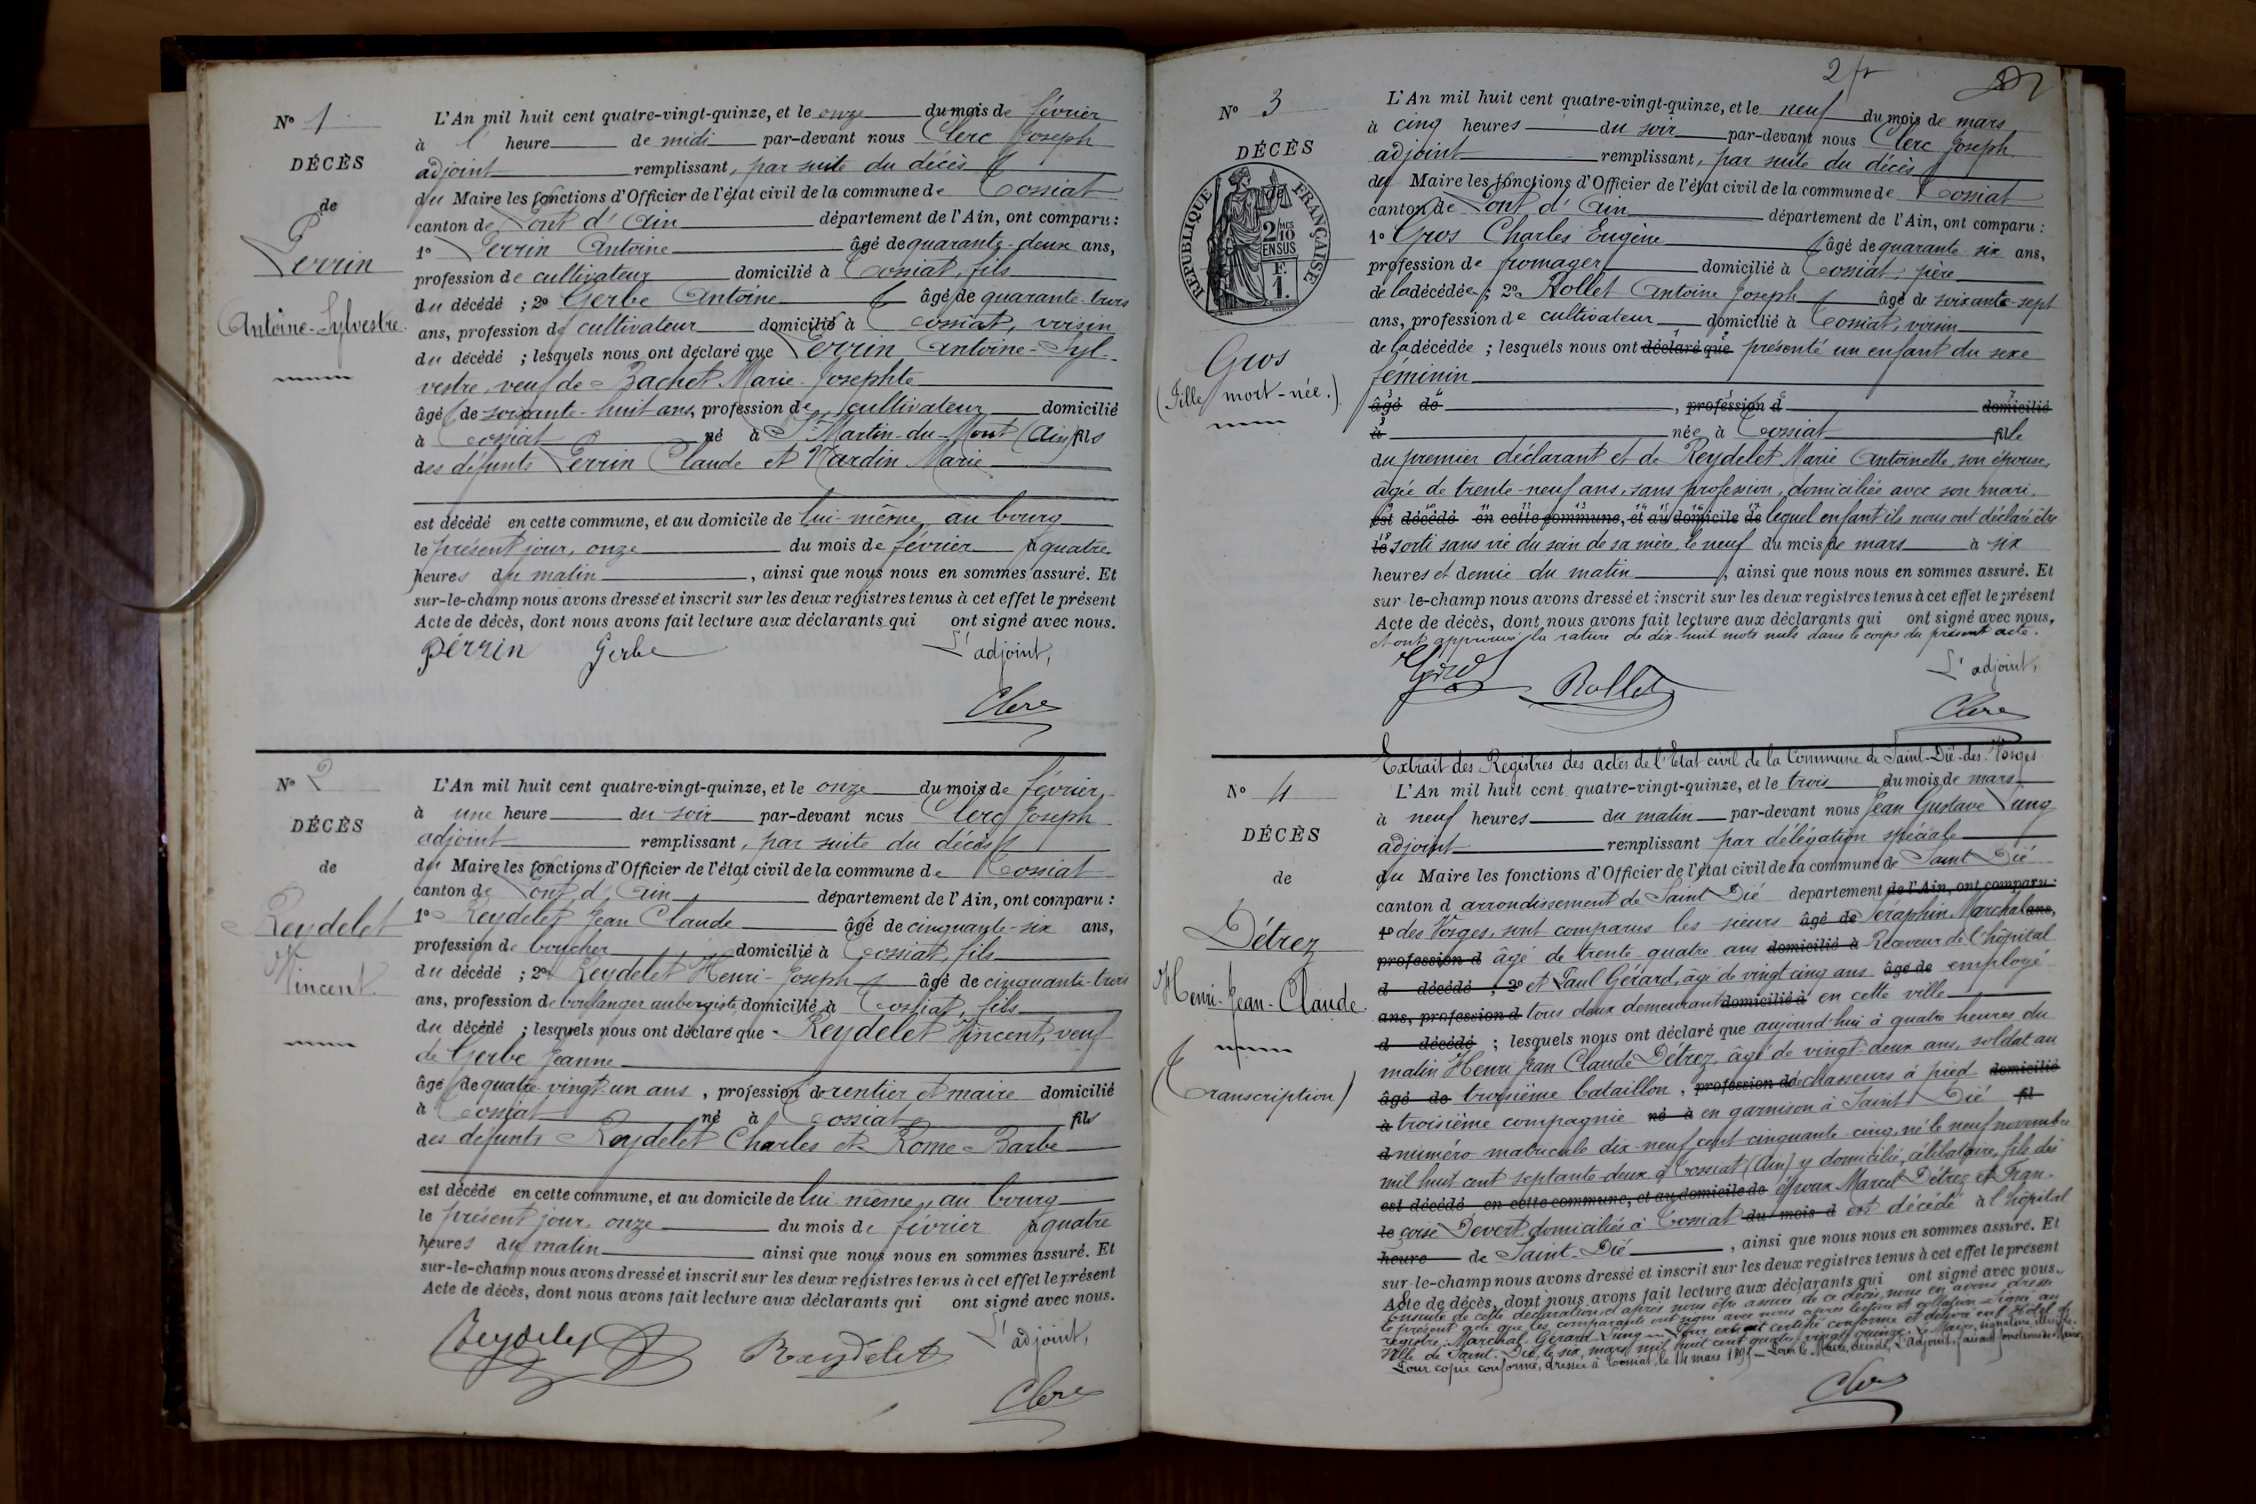 N° 1
DÉCÈS
de
Perrin
Antoine-Sylvestre.
L'An mil huit cent quatre-vingt-quinze, et le onze du mois de février
à 1 heure de midi par-devant nous Clerc Joseph
adjoint remplissant, par suite du décès
du Maire les fonctions d'Officier de l'état civil de la commune de Tossiat
canton de Pont d'Ain département de l'Ain, ont comparu :
1° Perrin Antoine âgé de quarante-deux ans,
profession de cultivateur domicilié à Tossiat, fils
du décédé ; 2° Gerbe Antoine âgé de quarante-trois
ans, profession de cultivateur domicilié à Tossiat, voisin
du décédé ; lesquels nous ont déclaré que Perrin Antoine-Syl-
vestre, veuf de Bachet Marie-Josephte
âgé de soixante-huit ans, profession de cultivateur domicilié
à Tossiat né à St Martin-du-Mont (Ain) fils
des défunts Perrin Claude et Nardin Marie
est décédé en cette commune, et au domicile de lui-même, au bourg
le présent jour, onze du mois de février à quatre
heures du matin, ainsi que nous nous en sommes assuré. Et
sur-le-champ nous avons dressé et inscrit sur les deux registres tenus à cet effet le présent
Acte de décès, dont nous avons fait lecture aux déclarants qui ont signé avec nous.
Perrin Gerbe L'adjoint,
Clerc
N° 2
DÉCÈS
de
Reydelet
Vincent
L'An mil huit cent quatre-vingt-quinze, et le onze du mois de février,
à une heure du soir par-devant nous Clerc Joseph
adjoint remplissant, par suite du décès
du Maire les fonctions d'Officier de l'état civil de la commune de Tossiat
canton de Pont d'Ain département de l'Ain, ont comparu :
1° Reydelet Jean Claude âgé de cinquante-six ans,
profession de boucher domicilié à Tossiat, fils
du décédé ; 2° Reydelet Henri-Joseph âgé de cinquante-trois
ans, profession de boulanger aubergiste, domicilié à Tossiat, fils
du décédé ; lesquels nous ont déclaré que Reydelet Vincent, veuf
de Gerbe Jeanne
âgé de quatre-vingt-un ans, profession de rentier et maire domicilié
à Tossiat né à Tossiat fils
des défunts Reydelet Charles et Rome Barbe
est décédé en cette commune, et au domicile de lui-même, au bourg
le présent jour, onze du mois de février à quatre
heures du matin ainsi que nous nous en sommes assuré. Et
sur-le-champ nous avons dressé et inscrit sur les deux registres tenus à cet effet le présent
Acte de décès, dont nous avons fait lecture aux déclarants qui ont signé avec nous.
Reydelet Reydelet L'adjoint,
Clerc
2
N° 3
DÉCÈS
de
RÉPUBLIQUE FRANÇAISE
2/10
EN SUS
F.
1.
Gros
(Fille mort-née.)
L'An mil huit cent quatre-vingt-quinze, et le neuf du mois de mars
à cinq heures du soir par-devant nous Clerc Joseph
adjoint remplissant, par suite du décès
du Maire les fonctions d'Officier de l'état civil de la commune de Tossiat
canton de Pont d'Ain département de l'Ain, ont comparu :
1° Gros Charles Eugène âgé de quarante six ans,
profession de fromager domicilié à Tossiat, père
de la décédée ; 2° Rollet Antoine Joseph âgé de soixante-sept
ans, profession de cultivateur domicilié à Tossiat, voisin
de la décédée ; lesquels nous ont déclaré que présenté un enfant du sexe
féminin
âgé de, profession d domicilié
à née à Tossiat fille
du premier déclarant et de Reydelet Marie Antoinette, son épouse,
âgée de trente-neuf ans, sans profession, domiciliée avec son mari,
est décédé en cette commune, et au domicile de lequel enfant ils nous ont déclaré être
le sorti sans vie du sein de sa mère, le neuf du mois de mars à six
heures et demie du matin, ainsi que nous nous en sommes assuré. Et
sur-le-champ nous avons dressé et inscrit sur les deux registres tenus à cet effet le présent
Acte de décès, dont nous avons fait lecture aux déclarants qui ont signé avec nous,
et ont approuvé la rature de dix-huit mots nuls dans le corps du présent acte.
Gros Rollet L'adjoint,
Clerc
Extrait des Registres des actes de l'Etat civil de la Commune de Saint-Dié-des-Vosges
N° 4
DÉCÈS
de
Détrez
Henri-Jean-Claude
(Transcription)
L'An mil huit cent quatre-vingt-quinze, et le trois du mois de mars
à neuf heures du matin par-devant nous Jean Gustave Lung
adjoint remplissant par délégation spéciale
du Maire les fonctions d'Officier de l'état civil de la commune de Saint Dié
canton d arrondissement de Saint Dié département de l'Ain, ont comparu :
1° des Vosges, sont comparus les sieurs âgé de Séraphin Marchal ans,
profession d âgé de trente quatre ans domicilié à Receveur de l'hôpital
d décédé ; 2° et Paul Gérard, âgé de vingt cinq ans âgé de employé
ans, profession d tous deux demeurant domicilié à en cette ville
d décédé ; lesquels nous ont déclaré que aujourd'hui à quatre heures du
matin Henri Jean Claude Détrez, âgé de vingt-deux ans, soldat au
âgé de troisième bataillon, profession d de chasseurs à pied domicilié
à troisième compagnie né à en garnison à Saint Dié fil
d numéro matricule dix-neuf cent cinquante-cinq, né le neuf novembre
mil huit cent septante-deux à Tossiat (Ain) y domicilié, célibataire, fils des
est décédé en cette commune, et au domicile de époux Marcel Détrez et Fran-
le çoise Devert, domiciliés à Tossiat du mois d est décédé à l'hôpital
heure de Saint-Dié, ainsi que nous nous en sommes assuré. Et
sur-le-champ nous avons dressé et inscrit sur les deux registres tenus à cet effet le présent
Acte de décès, dont nous avons fait lecture aux déclarants qui ont signé avec nous.
Ensuite de cette déclaration et après nous être assuré de ce décès, nous en avons dressé
le présent acte que les comparants ont signé avec nous après lecture et collation. Signé au
registre: Marchal, Gérard, Lung. Pour extrait certifié conforme et délivré en l'Hôtel de
Ville de Saint-Dié, le six mars mil huit cent quatre vingt quinze. Le Maire, signature illisible.
Pour copie conforme, dressée à Tossiat, le 14 mars 1895. Pour le Maire, décédé, L'adjoint, faisant fonctions de Maire,
Clerc